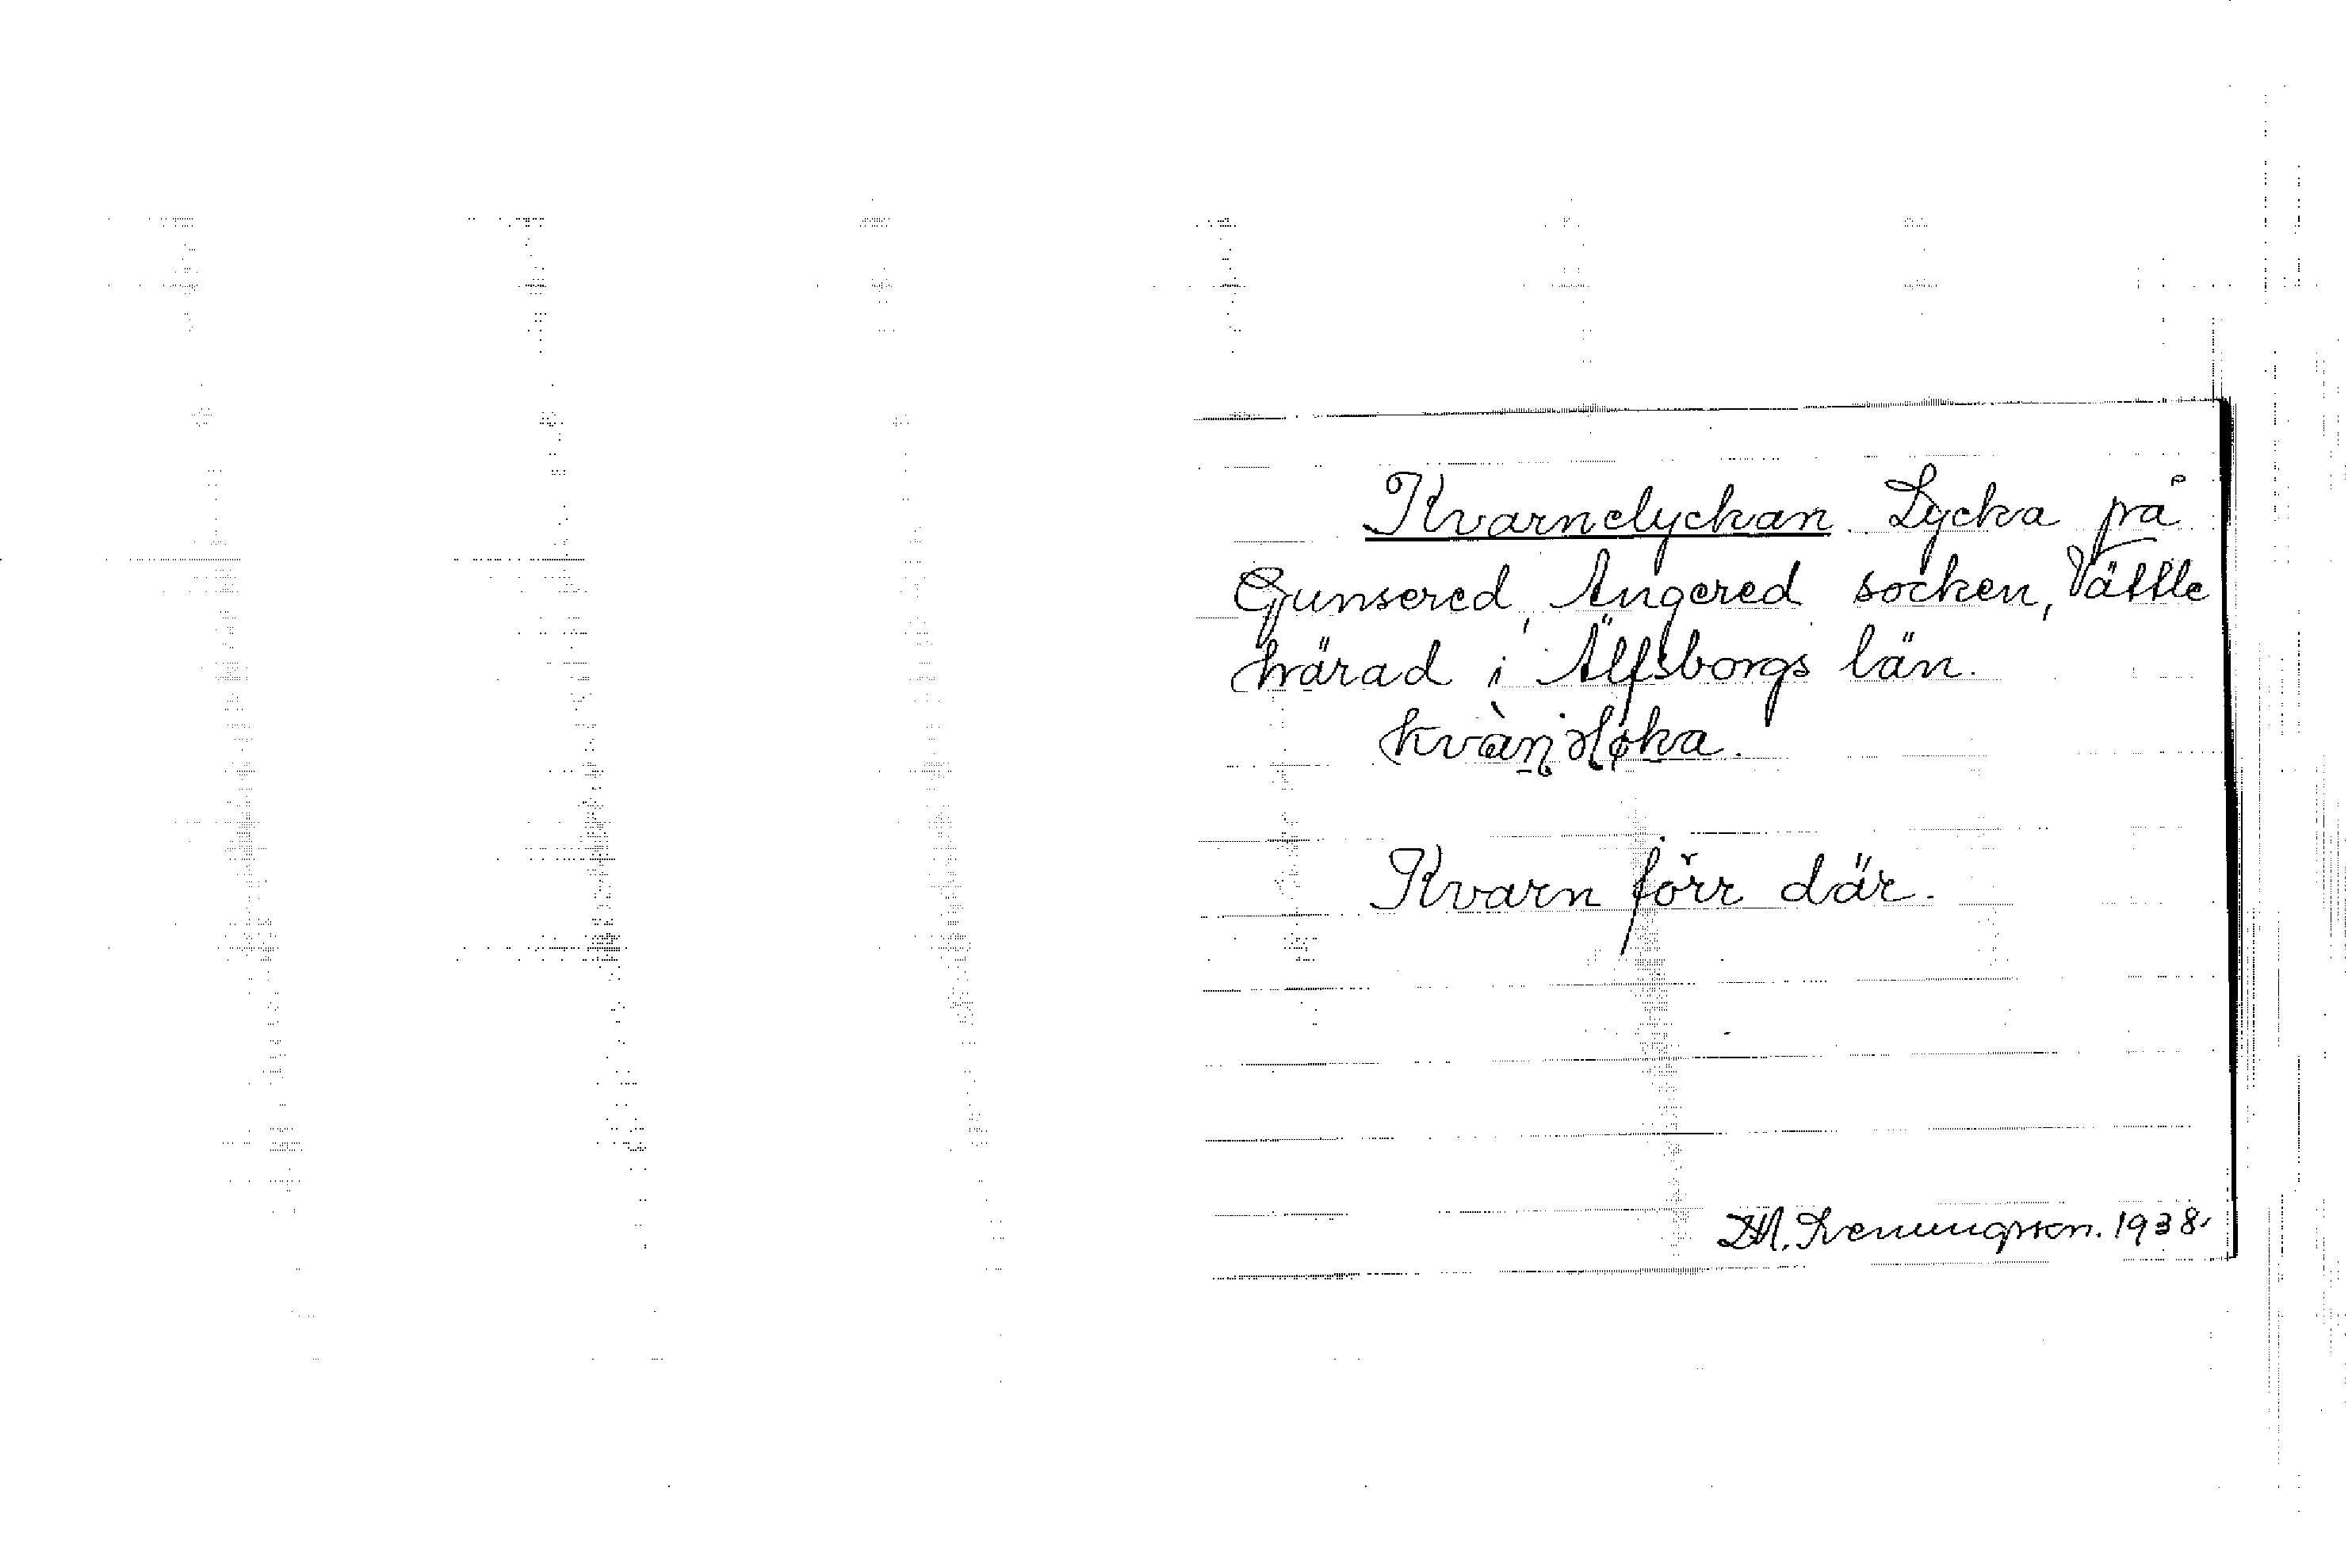 Kvarnelyckan. Lycka på
Gunsered, Angered socken, Vättle
härad i Älfsborgs län.
Kvarn förr där.
1938.